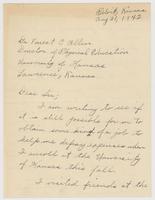 Beloit, Kansas
Aug 21, 1942
Dr. Forrest C. Allen
Director of Physical Education
University of Kansas
Lawrence, Kansas
Dear Sir:
I am writing to see if
it is still possible for me to
obtain some kind of a job to
help me defray expenses when
I enroll at the University
of Kansas this fall.
I visited friends at the